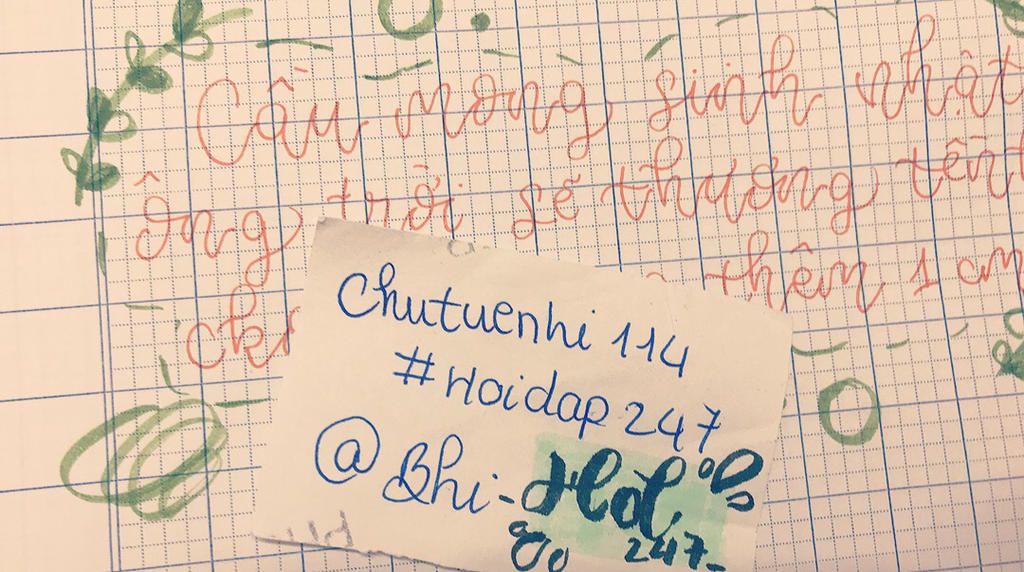 Cầu mong sinh nhật
ông trời sẽ thương tền
thêm 1
Chutuenhi 114
#Hoidap 247
@Bhi-
Hỏi
247-